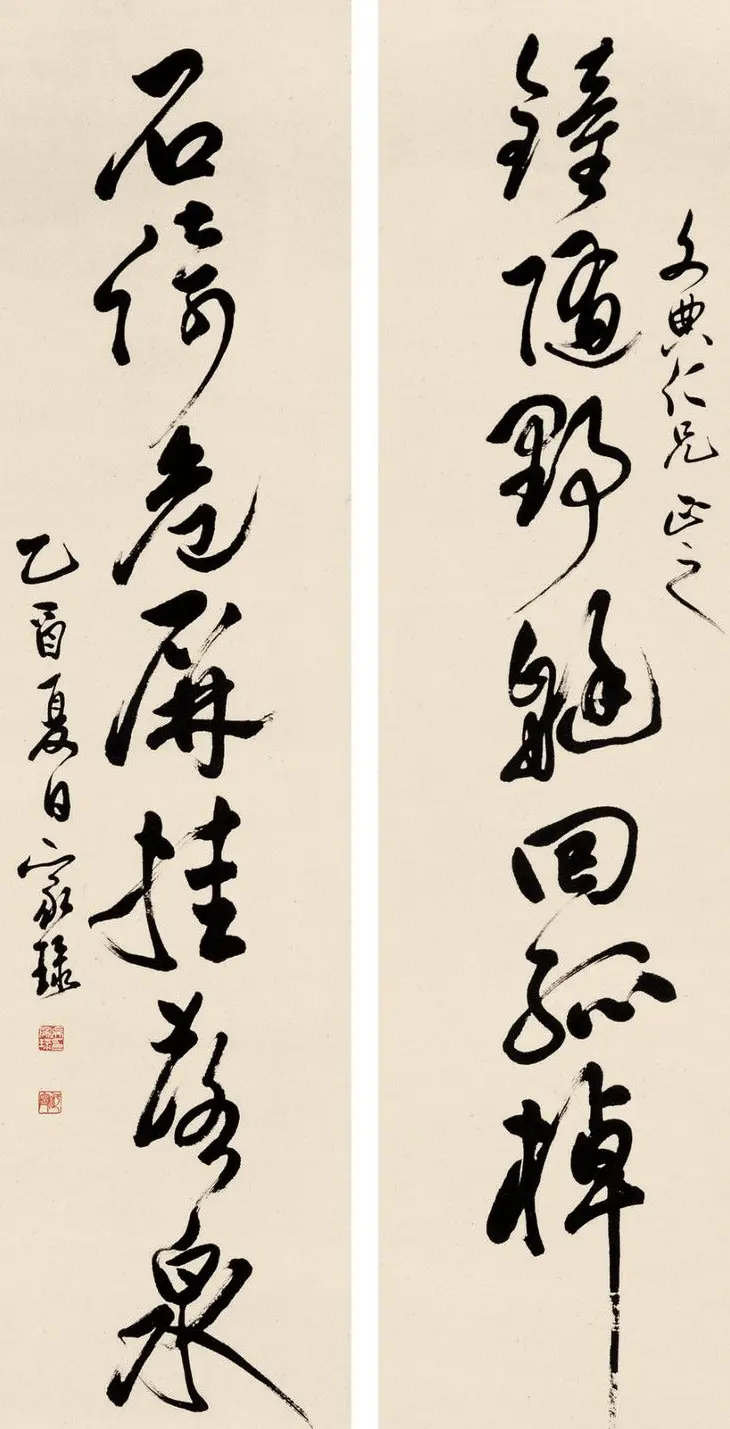 文典仁兄正之
鐘隨野艇回孤棹
石倚危屏挂落泉
乙酉夏日家琭